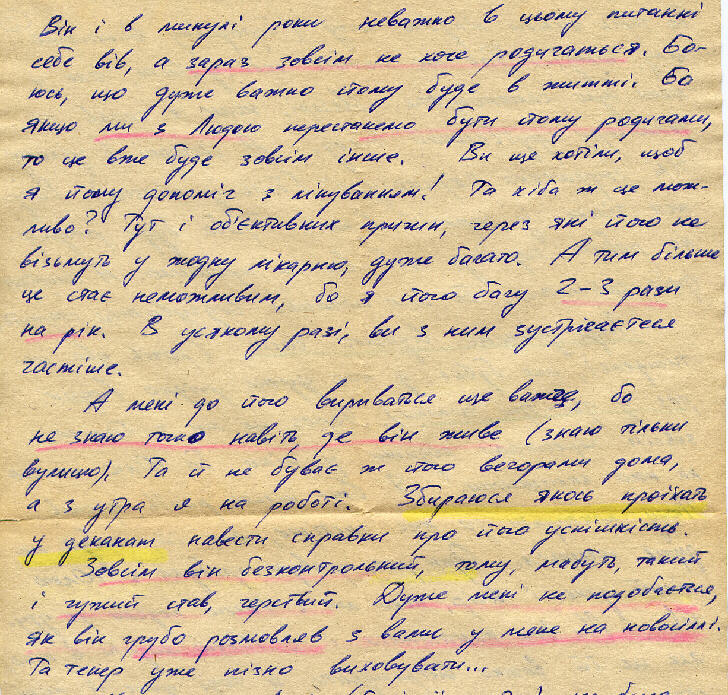 Він і в минулі роки неважно в цьому питанні
себе вів, а зараз зовсім не хоче родичаться. Бо-
юсь, що дуже важко йому буде в житті. Бо
якщо ми з Людою перестанемо бути йому родичами,
то це вже буде зовсім інше. Ви ще хотіли, щоб
я йому допоміг з лікуванням! Та хіба ж це мож-
ливо? Тут і об'єктивних причин, через які його не
візьмуть у жодну лікарню, дуже багато. А тим більше
це стає неможливим, бо я його бачу 2-3 рази
на рік. В усякому разі, ви з ним зустрічаєтеся
частіше.
А мені до його вириваться ще важче, бо
не знаю точно навіть, де він живе (знаю тільки
вулицю). Та й не буває ж його вечорами дома,
а з утра я на роботі. Збираюся якось проїхать
у деканат навести справки про його успішність.
Зовсім він безконтрольний, тому, мабуть, такий
і чужий став, черствий. Дуже мені не подобається,
як він грубо розмовляв з вами у мене на новосіллі.
Та тепер уже пізно виховувати...